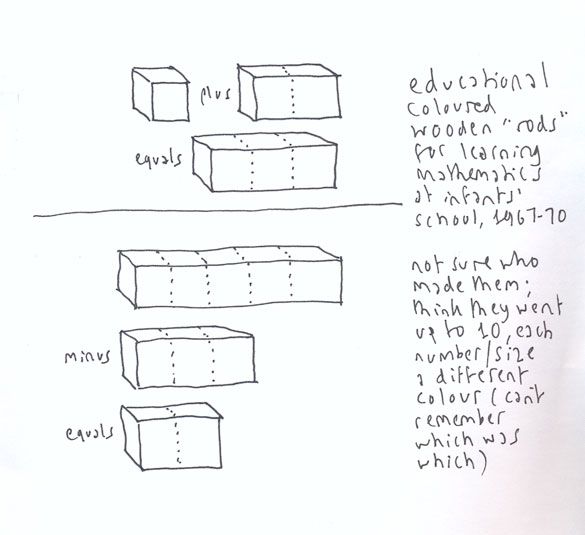 plus
equals
educational
coloured
wooden "rods"
for learning
mathematics
at infants'
school, 1967-70
minus
equals
not sure who
made them;
think they went
up to 10, each
number/size
a different
colour (can't
remember
which was
which)